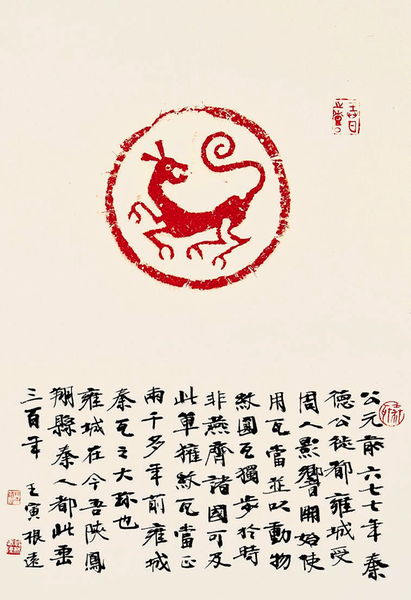 公元前六七七年秦
德公徙都雍城受
周人影響開始使
用瓦當並以動物
紋圖瓦獨步於時
非燕齊諸國可及
此單獾紋瓦當正
兩千多年前雍城
秦瓦之大珎也
雍城在今吾陝鳳
翔縣秦人都此垂
三百年 壬寅 根遠